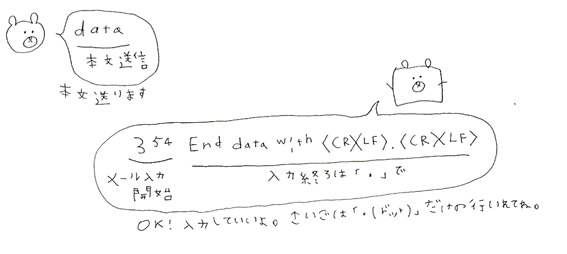 data
本文送信
本文送ります
354 End data with <CR><LF>.<CR><LF>
メール入力
開始
入力終了は「.」で
OK! 入力していいよ。さいごは「.(ドット)」だけの行いれてね。